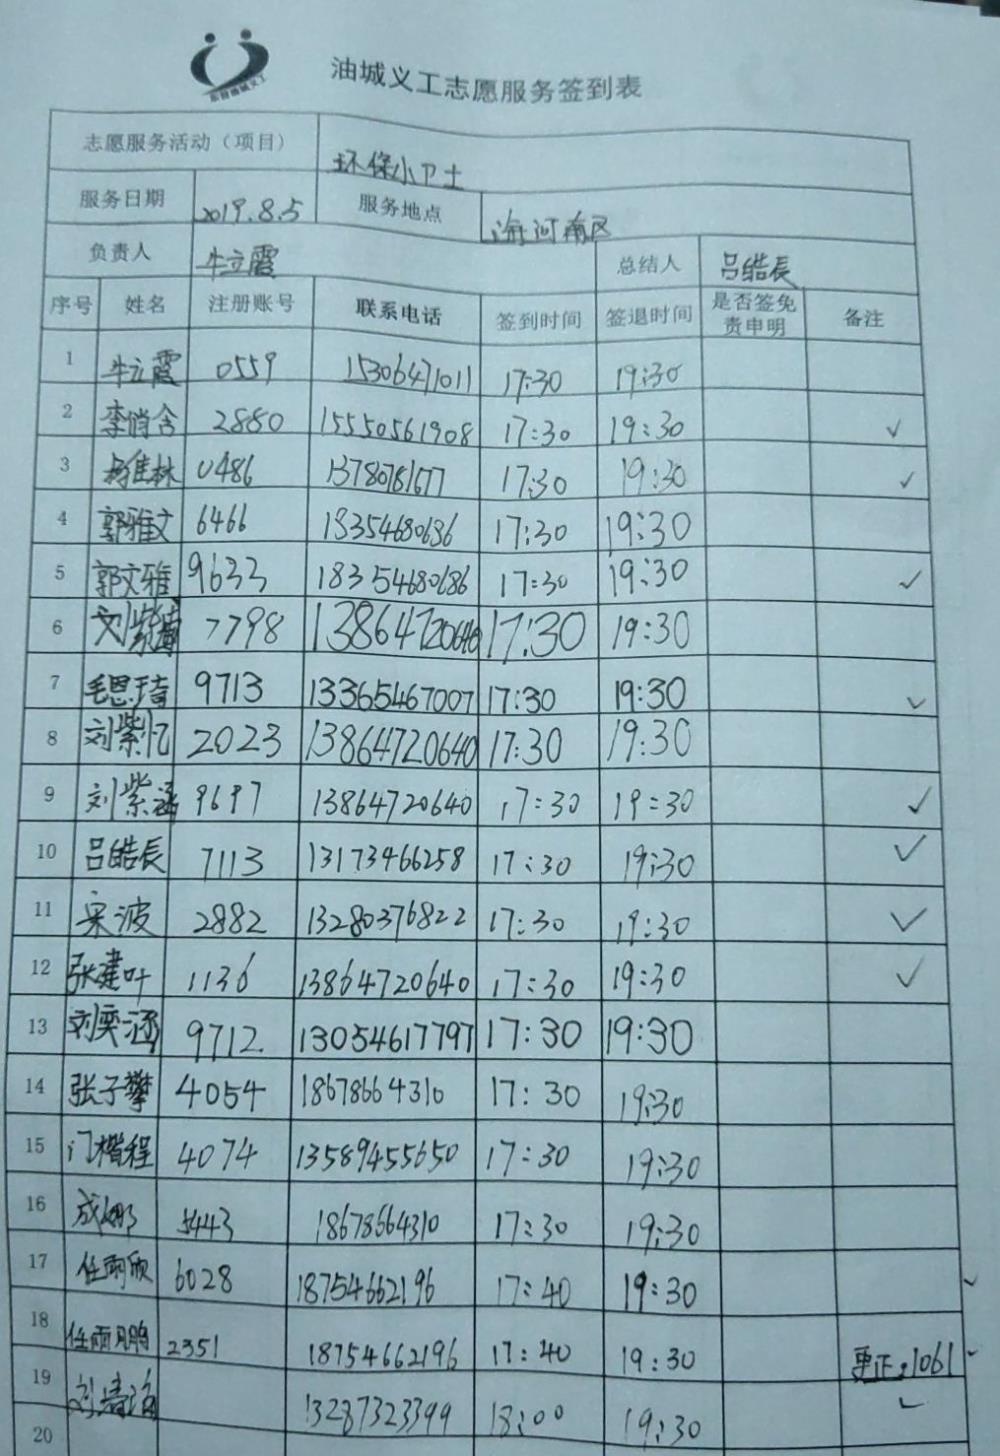 油城义工志愿服务签到表
志愿服务活动（项目） 环保小卫士
服务日期 2019.8.5 服务地点 河南区
负责人 牛立霞 总结人 吕皓辰
序号 姓名 注册账号 联系电话 签到时间 签退时间 是否签免责申明 备注
1 牛立霞 0559 15306471011 17:30 19:30
2 李俏含 2880 15550561908 17:30 19:30 ✓
3 林 0486 13780781677 17:30 19:30 ✓
4 郭雅文 6466 18354680686 17:30 19:30
5 郭文雅 9633 18354680686 17:30 19:30 ✓
6 刘紫 7798 13864720640 17:30 19:30
7 毛思琦 9713 13365467007 17:30 19:30 ✓
8 刘紫忆 2023 13864720640 17:30 19:30
9 刘紫涵 9697 13864720640 17:30 19:30 ✓
10 吕皓辰 7113 13173466258 17:30 19:30 ✓
11 宋波 2882 13280376822 17:30 19:30 ✓
12 张建叶 1136 13864720640 17:30 19:30 ✓
13 刘奕涵 9712 13054617797 17:30 19:30
14 张子攀 4054 18678664310 17:30 19:30
15 门楷程 4074 13589455650 17:30 19:30
16 成娜 5443 18678664310 17:30 19:30
17 任雨欣 6028 18754662196 17:40 19:30 ✓
18 任雨鹏 2351 18754662196 17:40 19:30 更正:1061 ✓
19 刘 13287323399 18:00 19:30 ✓
20